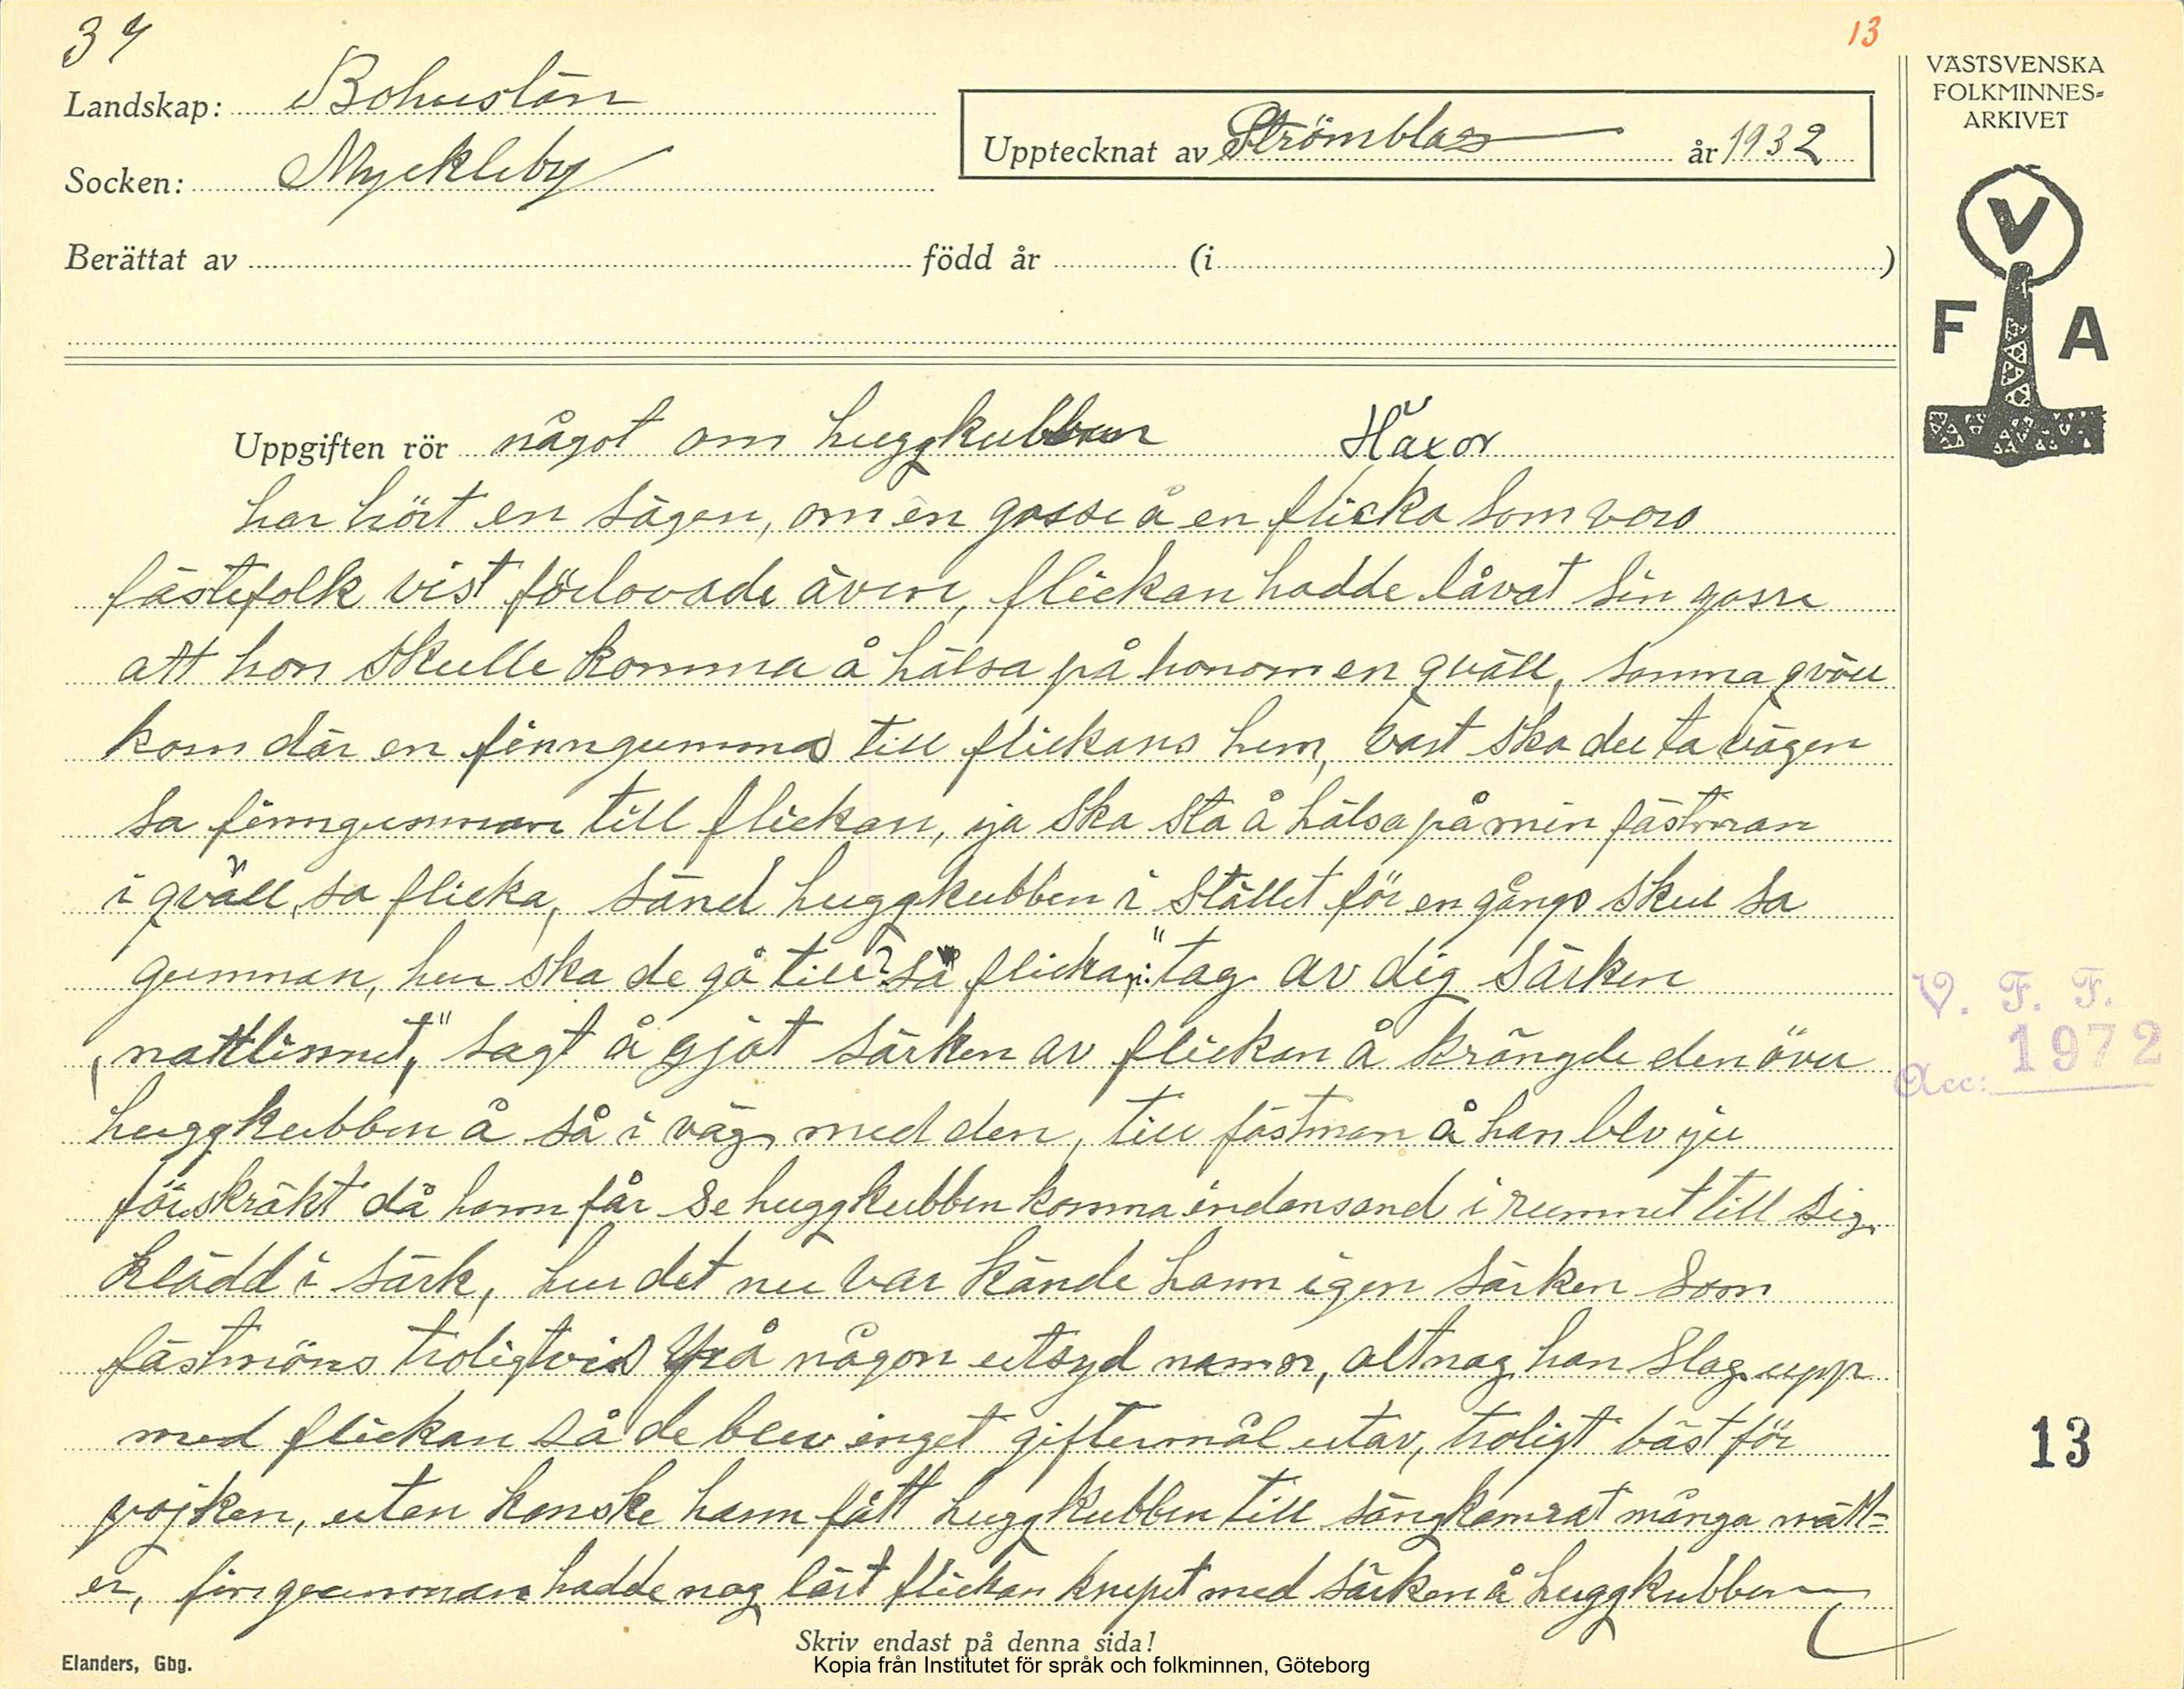 34
13
Landskap: Bohuslän
Socken: Myckleby
Upptecknat av Strömblad år 1932
Berättat av född år (i )
VÄSTSVENSKA
FOLKMINNES=
ARKIVET
V
F A
Uppgiften rör något om huggkubben Häxor
har hört en sägen, om en gosse å en flicka som voro
fästefolk vist förlovade även, flickan hadde låvat sin gosse
att hon skulle komma å hälsa på honom en qväll, samma qväll
kom där en finngumma till flickans hem, vart ska du ta vägen
sa finngumman till flickan, ja ska stå å hälsa på min fästman
i qväll, sa flicka, sänd huggkubben i stället för en gångs skul sa
gumman, hur ska de gå till? sa flickan: "tag av dig särken
(nattlinnet," sagt å gjöt särken av flickan å krängde den över
huggkubben å så i väg med den, till fästman å han blv ju
förskräkt då hann får se huggkubben komma indansand i rummet till sig
klädd i särk, hur det nu var kände hann igen särken som
fästmöns troligtvis på någon utsyd namn, altnog han slog upp
med flickan så de blev inget giftermål utav, troligt bäst för
pojken, utan kanske hann fått huggkubben till sängkamrat många nätt=
er, finngumman hadde nog lärt flickan knepet med särken å huggkubben
V. F. F.
1972
Acc:
13
Skriv endast på denna sida!
Elanders, Gbg.
Kopia från Institutet för språk och folkminnen, Göteborg